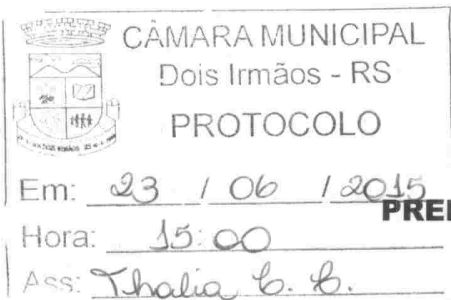 CÂMARA MUNICIPAL
Dois Irmãos - RS
PROTOCOLO
Em: 23 / 06 / 2015
PREI
Hora: 15:00
Ass: Thalia C. C.